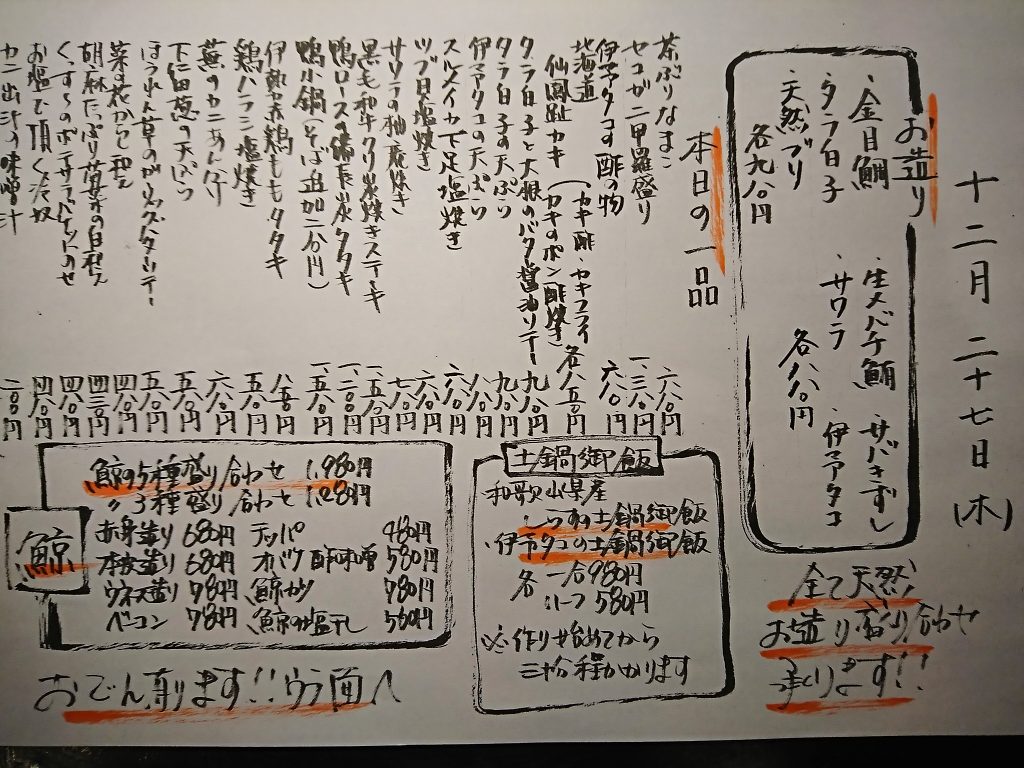 十二月二十七日(木)
お造り
・金目鯛 ・生メバチ鮪 ・サバきずし
・タラ白子 ・サワラ ・伊予タコ
・天然ブリ 各八八〇円
各九八〇円
全て天然
お造り盛り合わせ
承ります!!
本日の一品
茶ぶりなまこ 六八〇円
セコガニ甲羅盛り 一、三八〇円
伊予タコの酢の物 六八〇円
北海道
仙鳳趾カキ (カキ酢・カキフライ
カキのポン酢焼き) 各八五〇円
タラ白子と大根のバタ醤油ソテー 九八〇円
タラ白子の天ぷら 九八〇円
伊予タコの天ぷら 八八〇円
スルメイカ下足塩焼き
ツブ貝塩焼き 六八〇円
サワラの柚庵焼き
黒毛和牛クリ炭焼きステーキ
鴨ロースの備長炭タタキ
鴨小鍋(そば追加二八〇円)
伊勢赤鶏ももタタキ
鶏ハラミ塩焼き 五八〇円
蕪のカニあんかけ 六八〇円
下仁田葱の天ぷら 五八〇円
ほうれん草のガーリックバターソテー 五八〇円
菜の花からし和え 四八〇円
胡麻たっぷり春菊の白和え 四三〇円
お塩で頂く冷奴 四八〇円
カニ出汁の味噌汁
土鍋御飯
和歌山県産
しらすの土鍋御飯
・伊予タコの土鍋御飯
各 一合980円
ハーフ580円
※作り始めてから
三十分程かかります
鯨
鯨の5種盛り合わせ 1,980円
〃3種盛り合わせ 1,280円
赤身造り 680円 テッパ 480円
本皮造り 680円 オバケ酢味噌 580円
ウネス造り 780円 鯨カツ 780円
ベーコン 780円 鯨の塩干し 560円
おでん有ります!!ウラ面へ